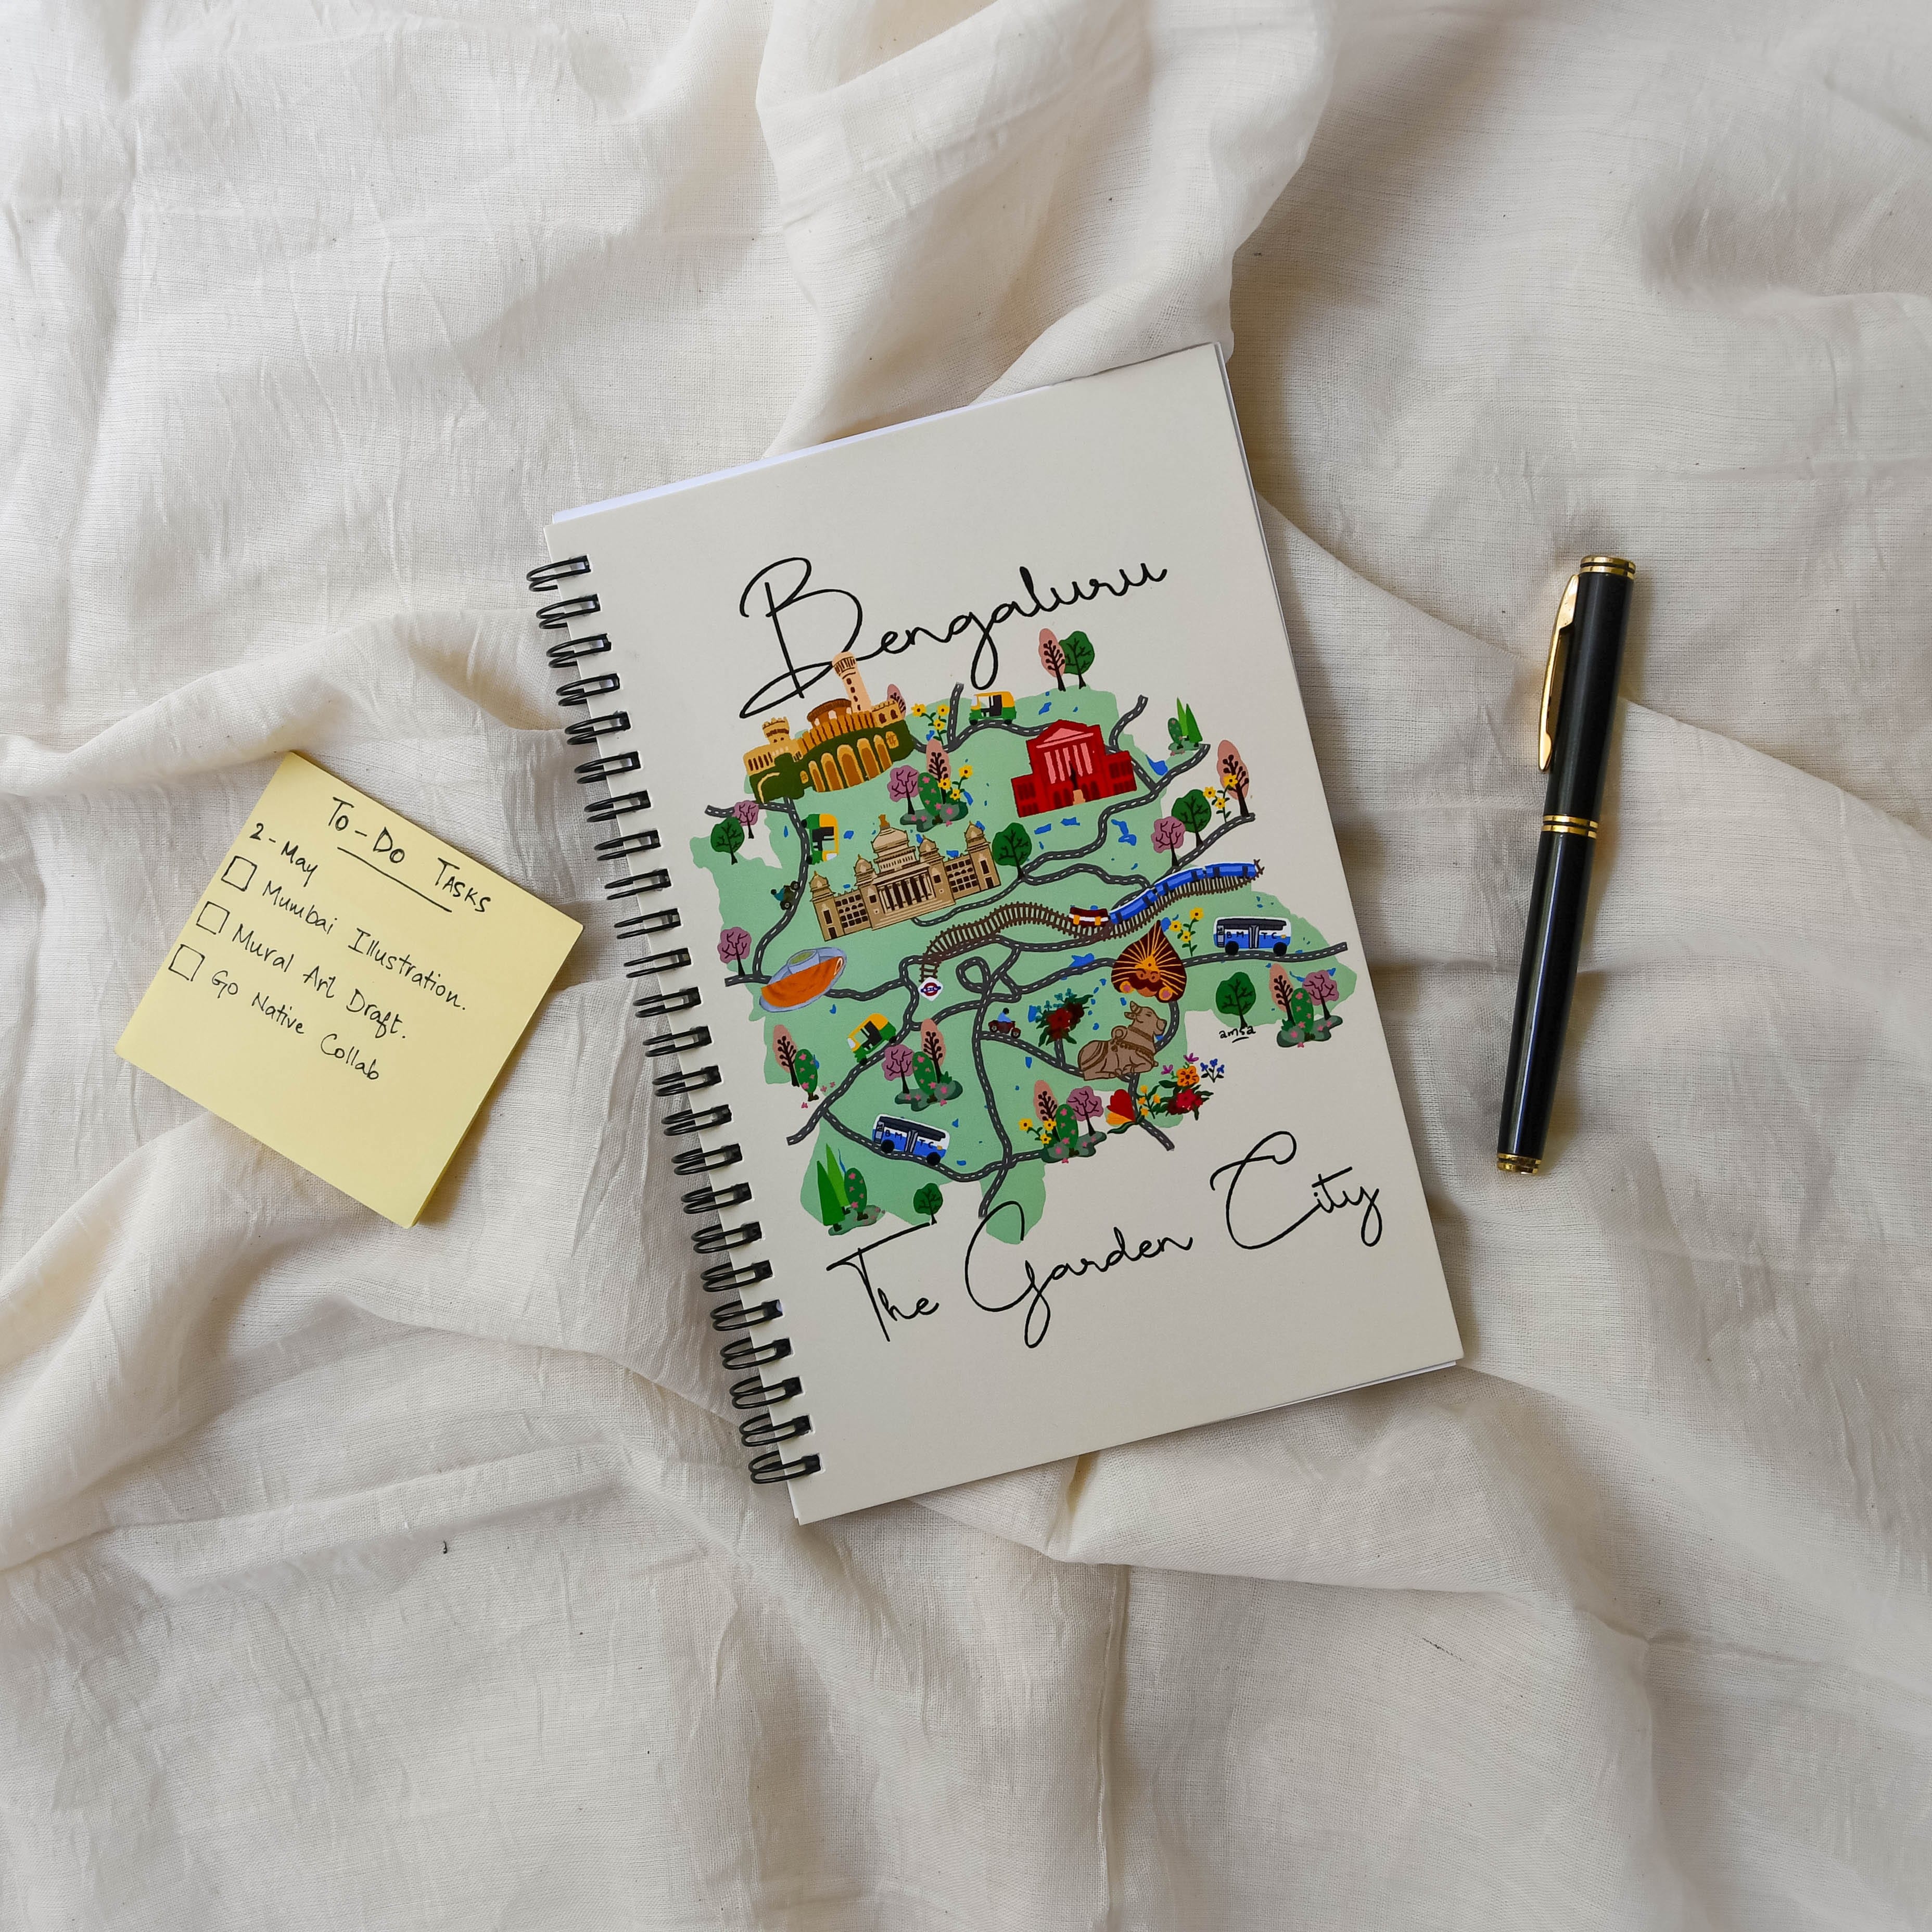 To-Do Tasks
2-May
Mumbai Illustration.
Mural Art Draft.
Go Native Collab
Bengaluru
BMTC
amsa
BMTC
The Garden City